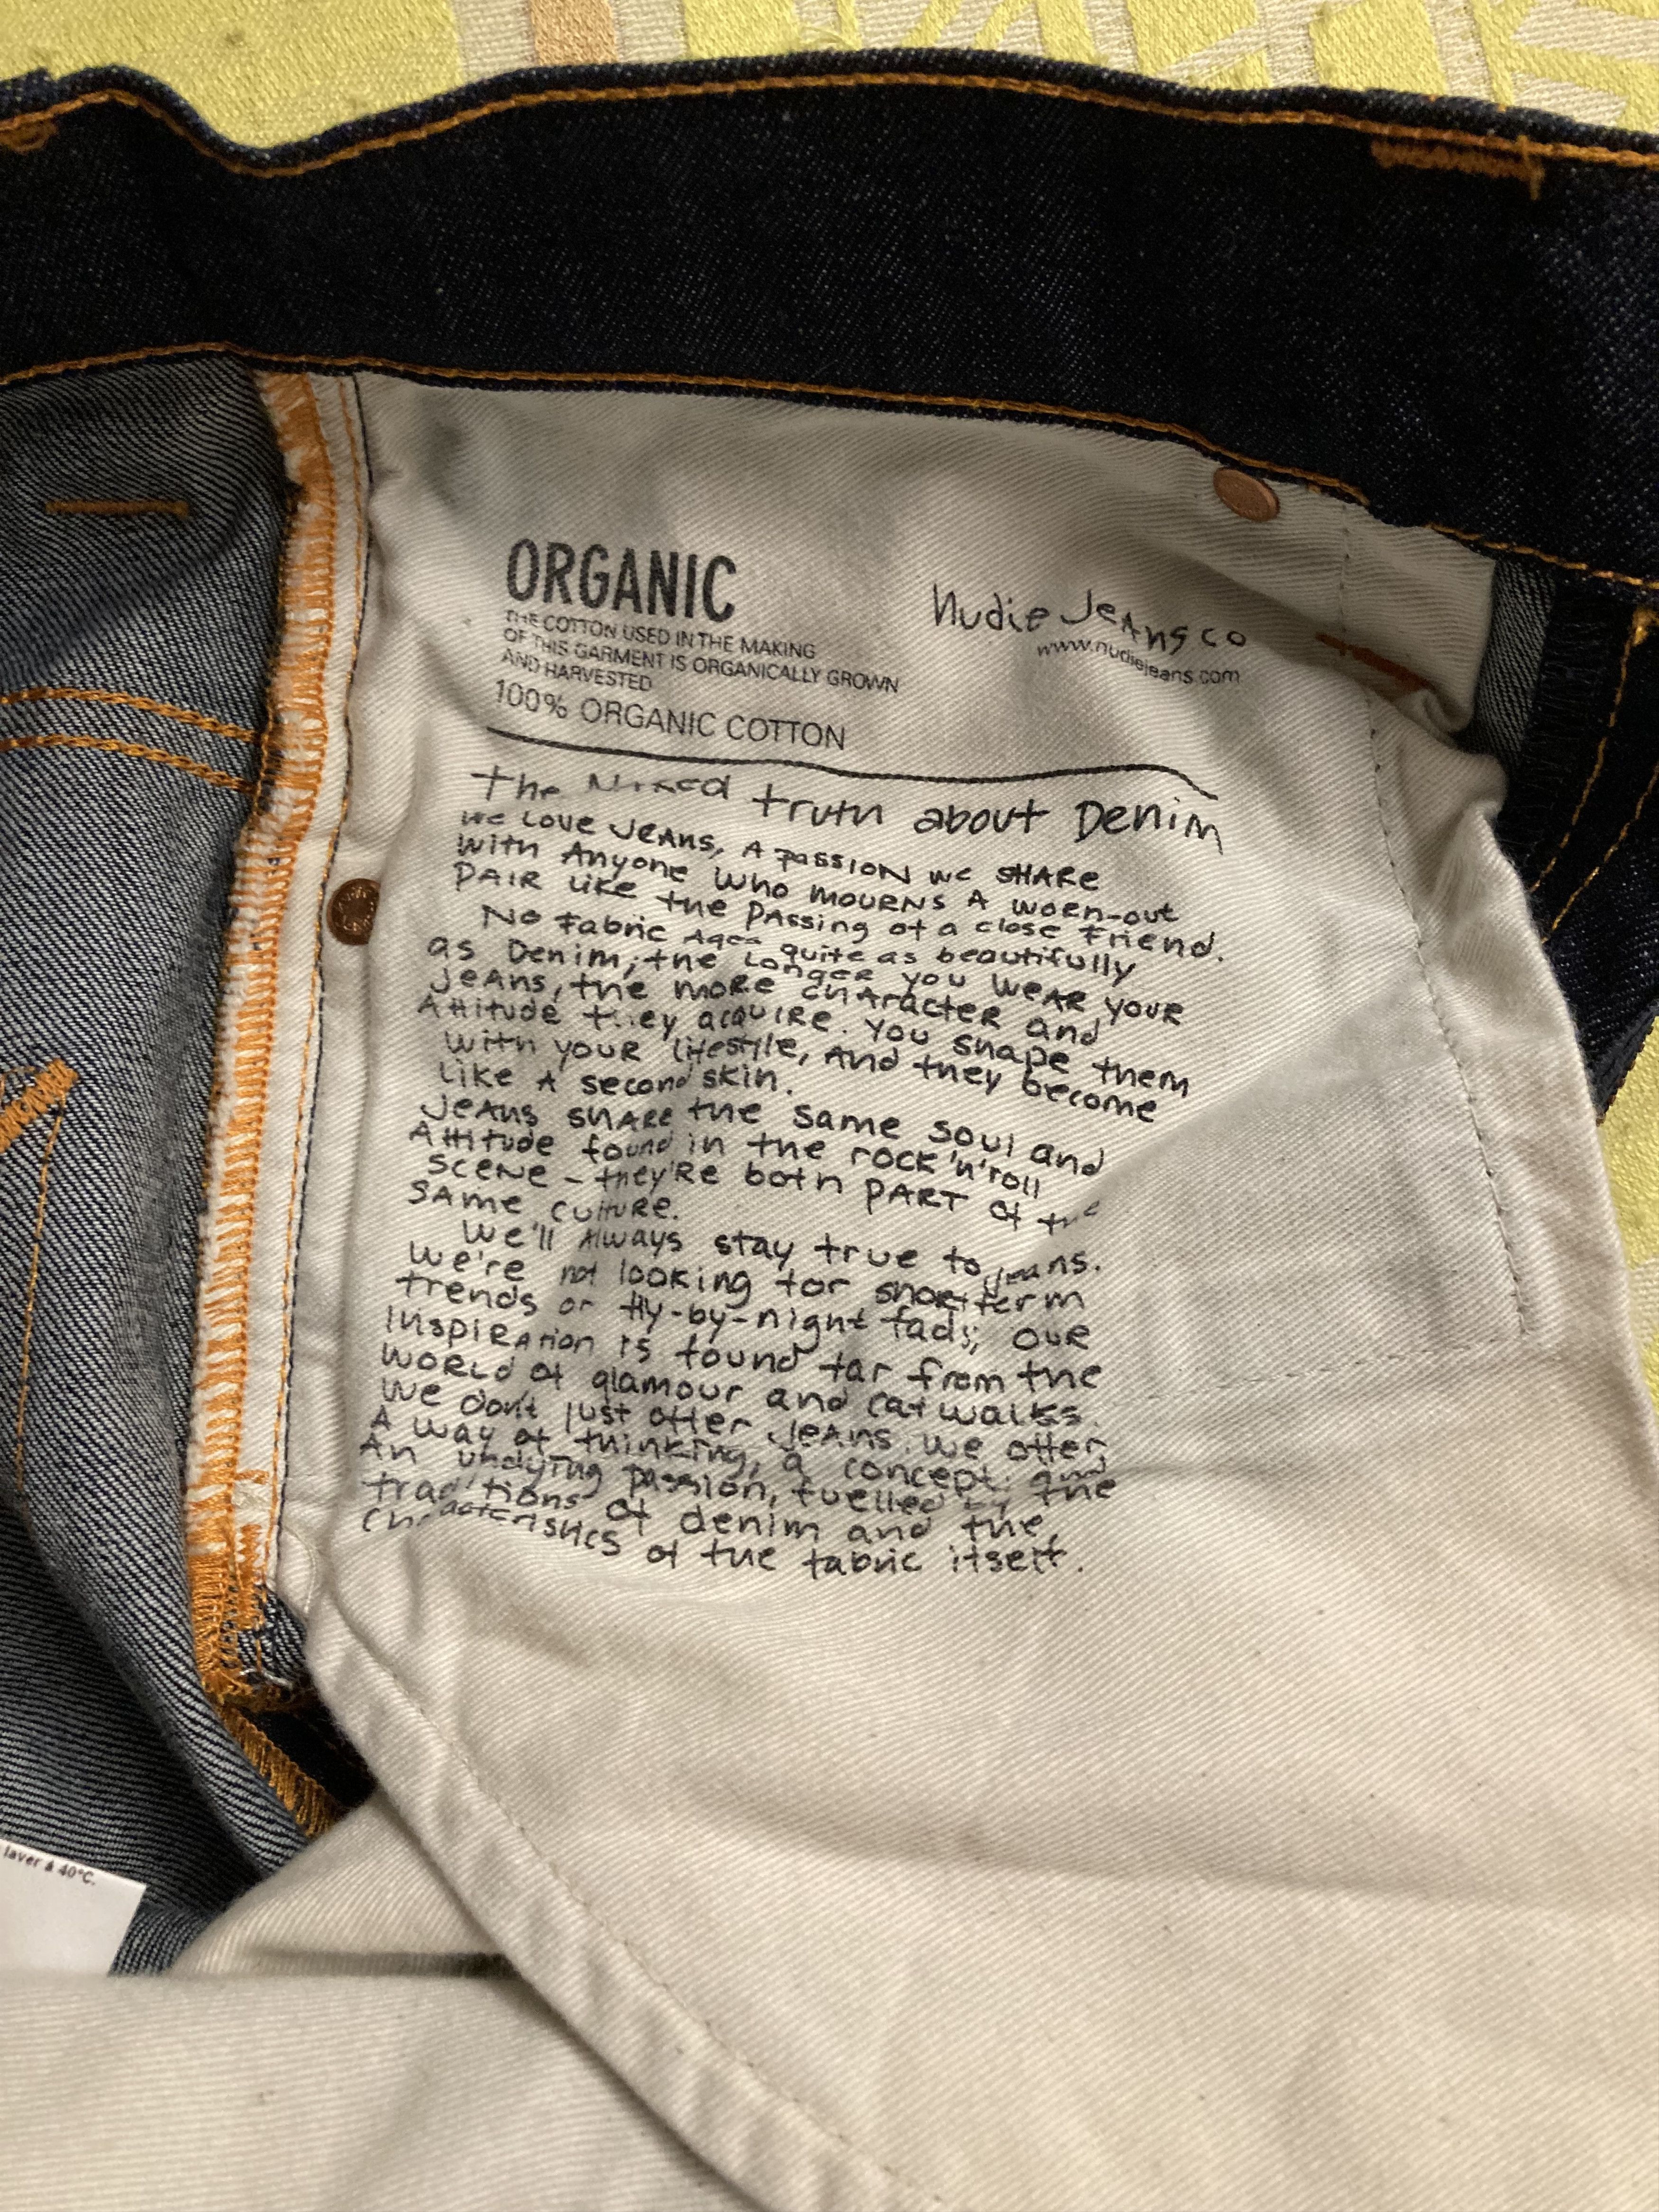 ORGANIC
THE COTTON USED IN THE MAKING
OF THIS GARMENT IS ORGANICALLY GROWN
AND HARVESTED
100% ORGANIC COTTON
Nudie Jeans co
www.nudiejeans.com
The Naked truth about Denim
We Love JEANS, A PASSION we SHARE
With Anyone Who mourns A worn-out
PAIR Like the PAssing of a close Friend.
No Fabric Ages quite as beautifully
as Denim; the Longer you WEAR YOUR
JeAns, the more cHAracter and
Attitude they acquire. You shape them
With your lifestyle, And they become
Like A second skin.
JeAns sHARe the same soul and
Attitude found in the rock'n'roll
scene - they're both PART of the
SAme culture.
We'll Always stay true to jeans.
We're not looking for short term
trends or fly-by-night fads; our
Inspiration is found far from the
World of glamour and catwalks.
We don't just offer JeAns. We offer
A way of thinking, a concept and
An undying passion, fuelled by the
traditions of denim and the,
characteristics of the fabric itself.
laver à 40°C.